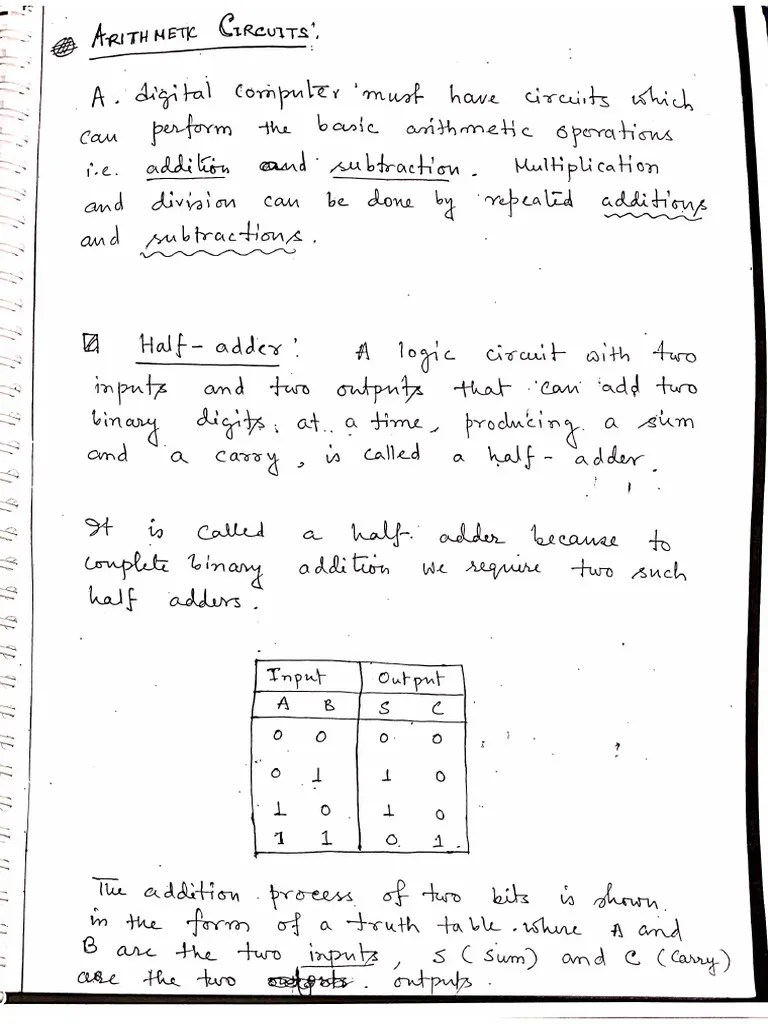 ARITHMETIC CIRCUITS:
A digital computer must have circuits which
can perform the basic arithmetic operations
i.e. addition and subtraction. Multiplication
and division can be done by repeated additions
and subtractions.
Half-adder: A logic circuit with two
inputs and two outputs that can add two
binary digits at a time, producing a sum
and a carry, is called a half-adder.
It is called a half adder because to
complete binary addition we require two such
half adders.
Input Output
A B S C
0 0 0 0
0 1 1 0
1 0 1 0
1 1 0 1
The addition process of two bits is shown
in the form of a truth table where A and
B are the two inputs, S (Sum) and C (Carry)
are the two outputs.